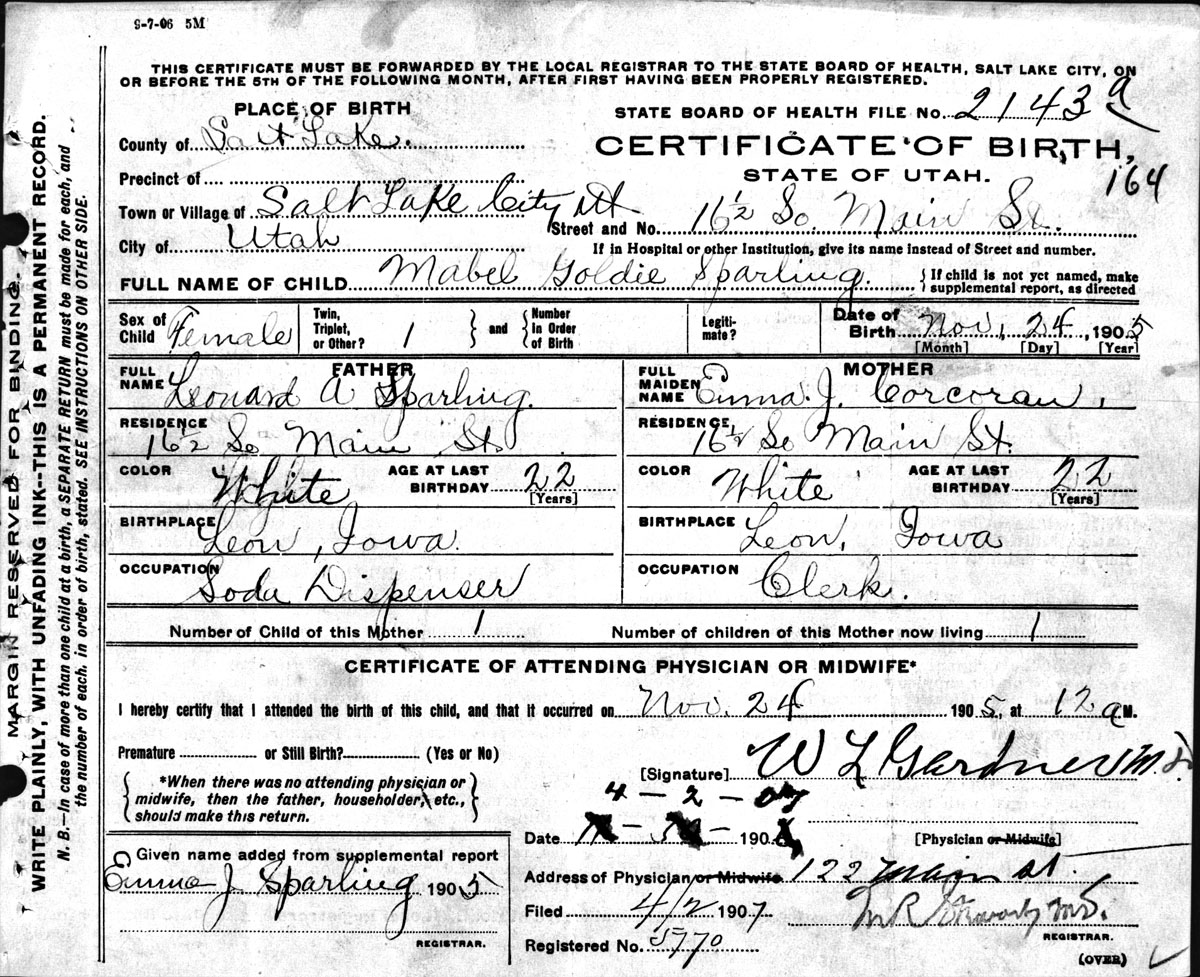 9-7-06 5M
THIS CERTIFICATE MUST BE FORWARDED BY THE LOCAL REGISTRAR TO THE STATE BOARD OF HEALTH, SALT LAKE CITY, ON
OR BEFORE THE 5TH OF THE FOLLOWING MONTH, AFTER FIRST HAVING BEEN PROPERLY REGISTERED.
PLACE OF BIRTH
STATE BOARD OF HEALTH FILE No. 2143 a
County of Salt Lake.
CERTIFICATE OF BIRTH,
STATE OF UTAH.
164
Precinct of
Town or Village of Salt Lake City Ut
Street and No. 16½ So Main St.
City of Utah
If in Hospital or other Institution, give its name instead of Street and number.
FULL NAME OF CHILD Mabel Goldie Sparling
{If child is not yet named, make
supplemental report, as directed
Sex of Child Female
Twin, Triplet, or Other? 1 } and { Number in Order of Birth
Legiti-mate?
Date of Birth Nov, 24, 1905
[Month] [Day] [Year]
FATHER
FULL NAME Leonard A Sparling.
MOTHER
FULL MAIDEN NAME Emma J. Corcoran,
RESIDENCE 16½ So Main St.
RESIDENCE 16½ So Main St.
COLOR White AGE AT LAST BIRTHDAY 22 [Years]
COLOR White AGE AT LAST BIRTHDAY 22 [Years]
BIRTHPLACE Leon, Iowa.
BIRTHPLACE Leon, Iowa
OCCUPATION Soda Dispenser
OCCUPATION Clerk.
Number of Child of this Mother 1
Number of children of this Mother now living 1
CERTIFICATE OF ATTENDING PHYSICIAN OR MIDWIFE*
I hereby certify that I attended the birth of this child, and that it occurred on Nov. 24 1905, at 12 a M.
Premature or Still Birth? (Yes or No)
[Signature] W L Gardner M.D.
{*When there was no attending physician or
midwife, then the father, householder, etc.,
should make this return.}
4 - 2 - 07
Date 190
[Physician or Midwife]
Given name added from supplemental report
Emma J Sparling 1905
REGISTRAR.
Address of Physician or Midwife 122 Main st
Filed 4/2 1907
M.D.
REGISTRAR.
Registered No. 5770
(OVER)
MARGIN RESERVED FOR BINDING.
WRITE PLAINLY, WITH UNFADING INK--THIS IS A PERMANENT RECORD.
N. B.—In case of more than one child at a birth, a SEPARATE RETURN must be made for each, and
the number of each, in order of birth, stated. SEE INSTRUCTIONS ON OTHER SIDE.